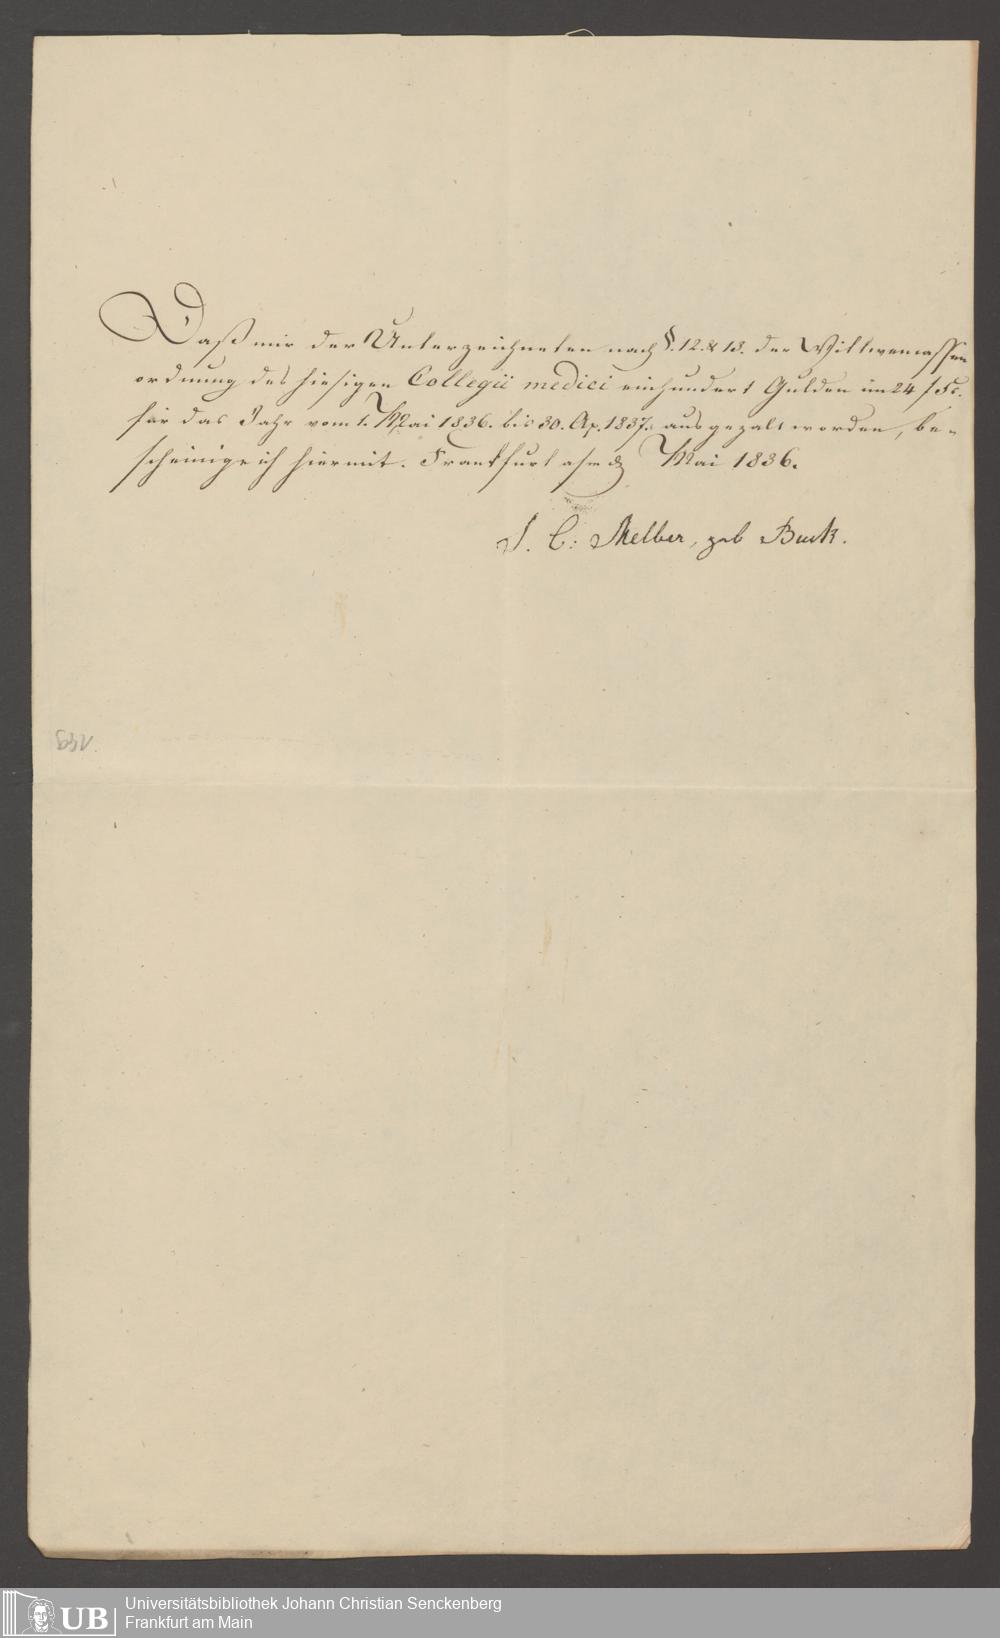 Daß mir der Unterzeichneten nach §. 12. & 13. der Wittwencassen
ordnung des hiesigen Collegii medici einhundert Gulden im 24 f Fs.
für das Jahr vom 1. Mai 1836. bis 30. Ap. 1837. ausgezalt worden, be-
scheinige ich hiermit. Frankfurt a/m d Mai 1836.
J. C: Melber, geb Buck.
Universitätsbibliothek Johann Christian Senckenberg
Frankfurt am Main
UB